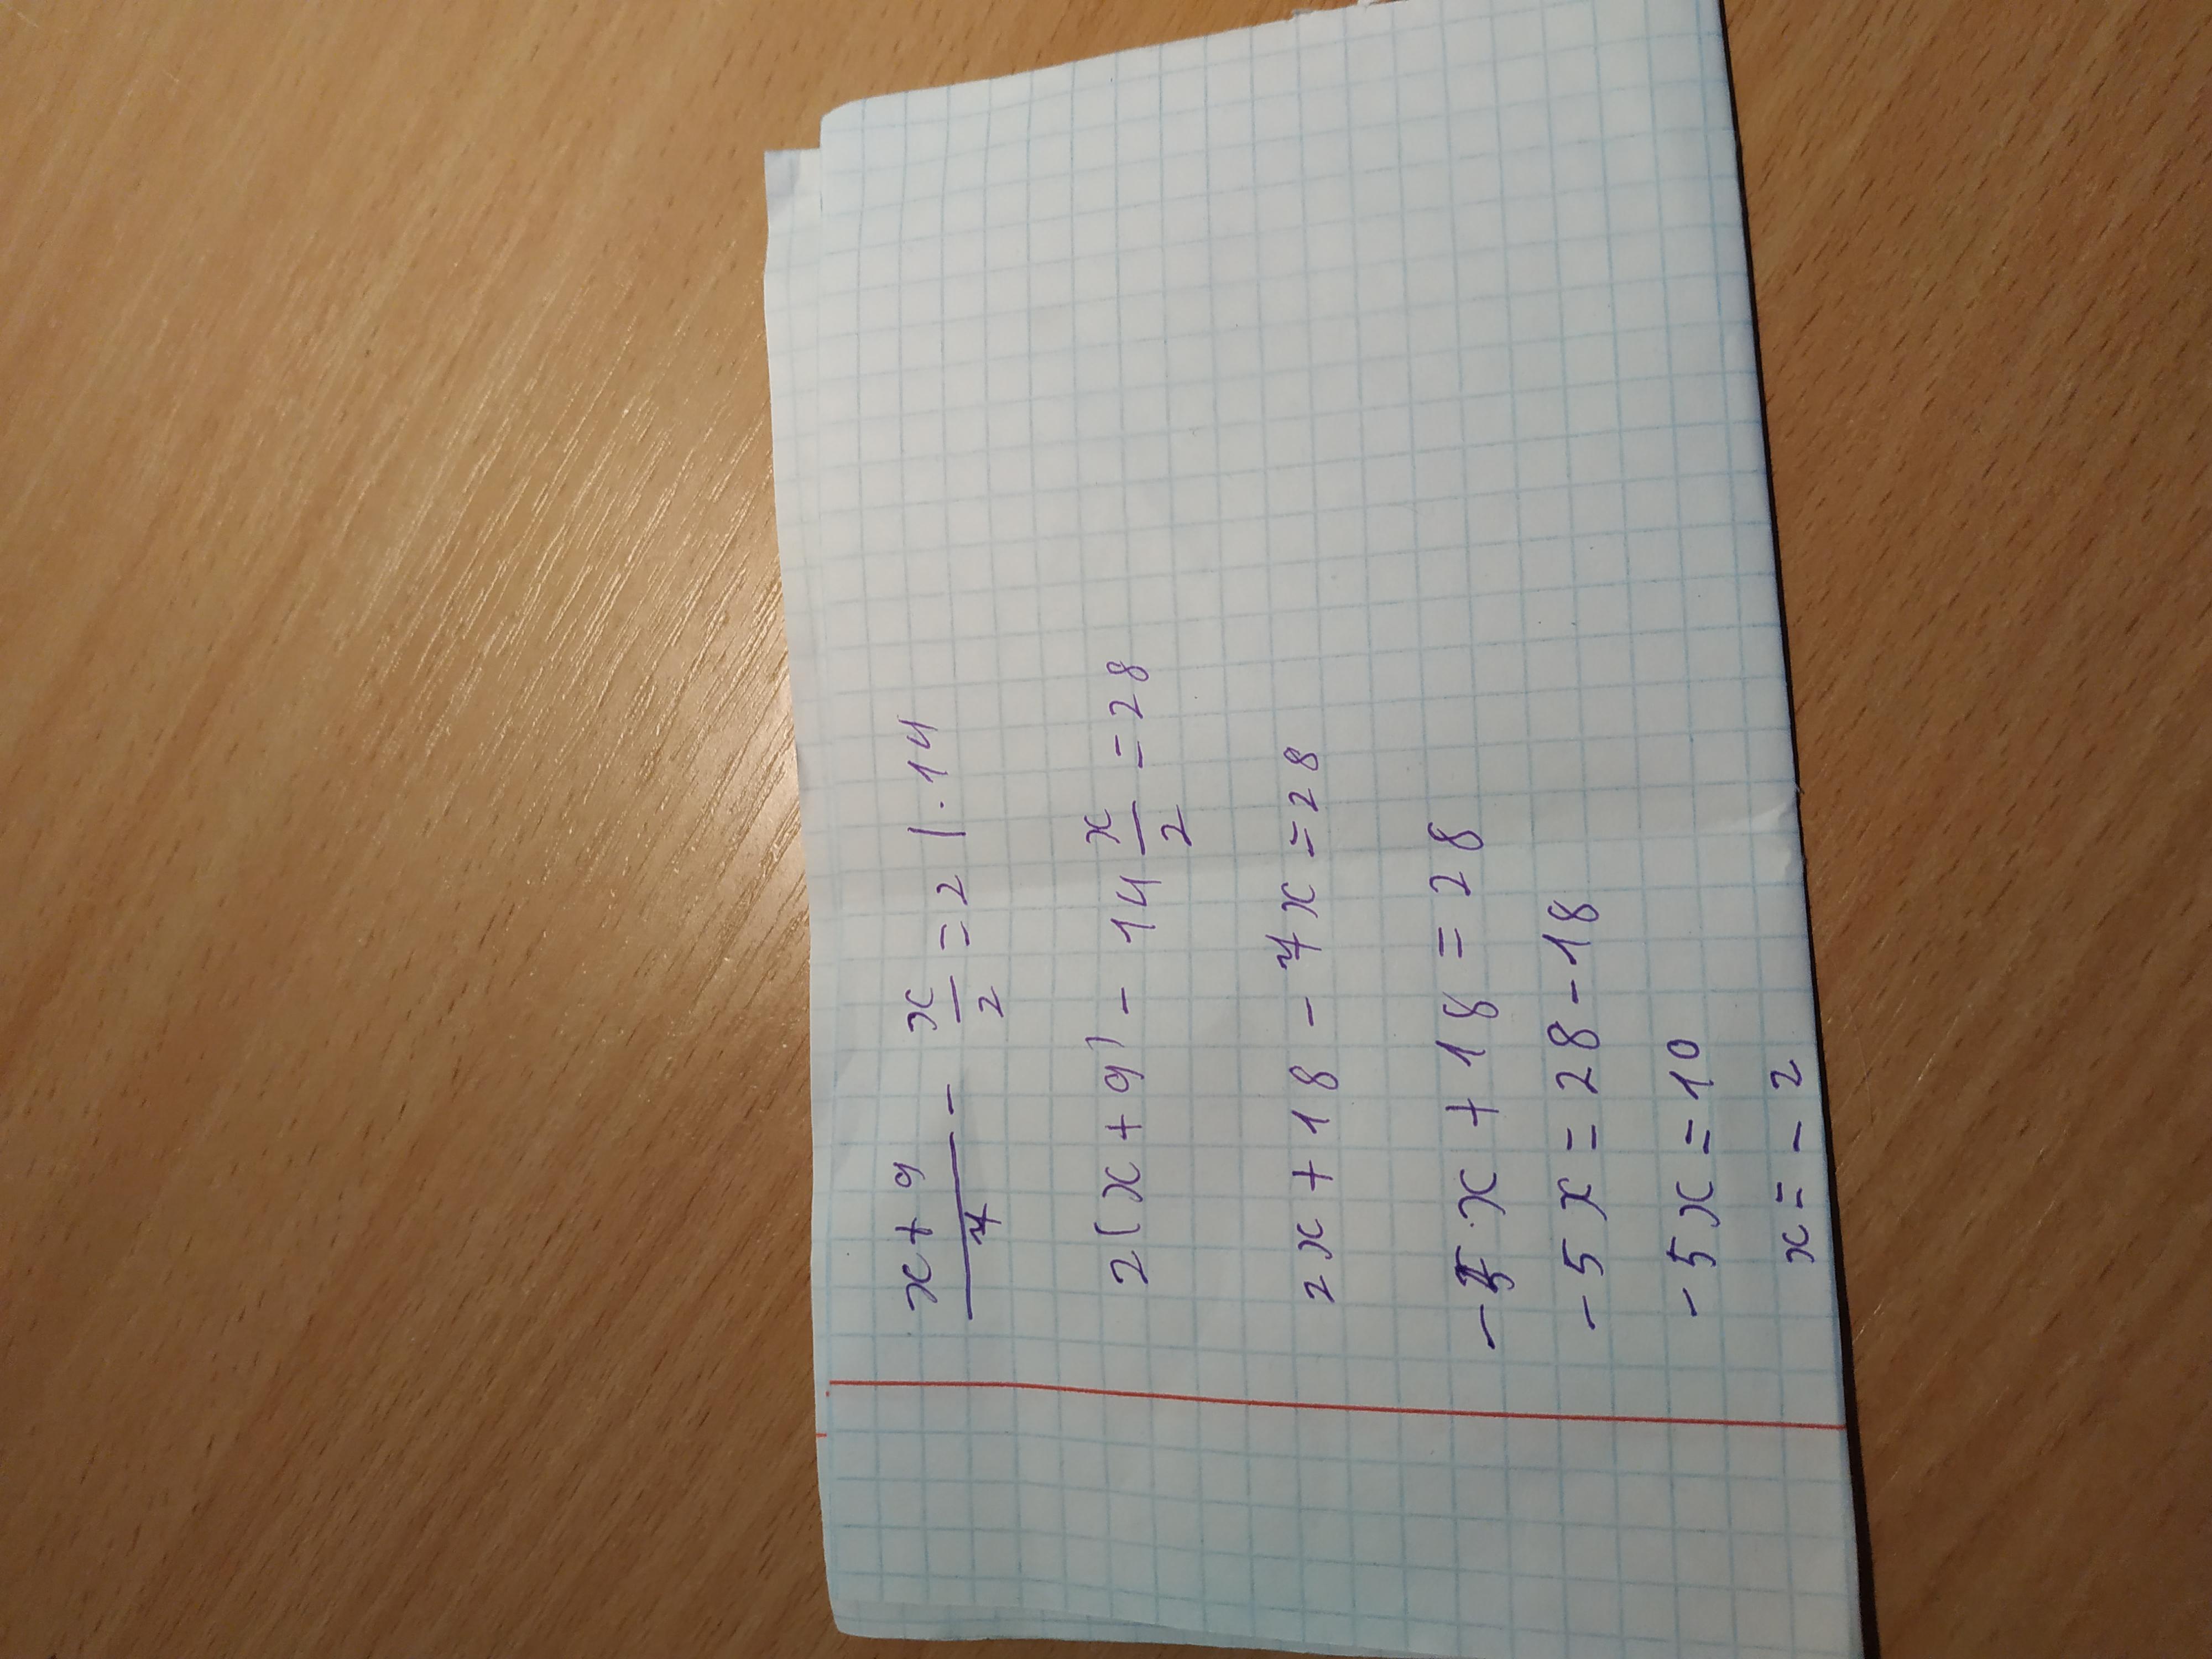 (x+9)/7 - x/2 = 2 | · 14
2(x+9) - 14 x/2 = 28
2x + 18 - 7x = 28
-5·x + 18 = 28
-5x = 28 - 18
-5x = 10
x = -2